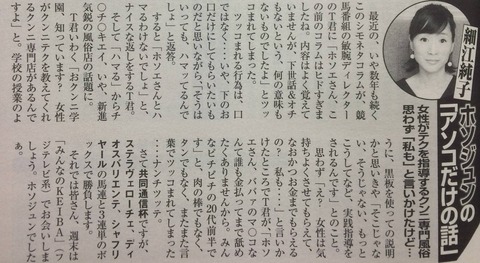 細江純子
ホソジュンの
「アソコだけの話」
女性がテクを指導するクンニ専門風俗
思わず「私も」と言いかけたけど…
最近の、いや数年も続く
このシモネタコラムが、競
馬番組の敏腕ディレクター
のT君に「ホソエさん、こ
の前のコラムはヒドすぎま
したね。内容はよく覚えて
いませんが、下世話＆オチ
もないという、何の意味も
ないものでしたよ」とツッ
コまれてしまった。
ツッコまれる行為は、口
ではなく、いや、下のお
口だけにしてもらいたいも
のだと思いながら、「そうは
いっても、ハマってるんで
しょ」と返答。
すると「ホソエさんとハ
マるわけないでしょ」と、
ナイスな返しをするT君。
そして「ハマる」からチ
〇チ〇キエイ、いや、新進
気鋭の風俗店の話題に。
T君いわく「おクン二学
園、知っています? 女性
がクンニテクを教えてくれ
るクンニ専門店があるんで
すよ」と。学校の授業のよ
うに、黒板を使っての説明
かと思いきや「そこじゃな
い、そうじゃない、もっと
こうしてなど、実践指導を
されるんです」とのこと。
思わず「え? 女性は気
持ちよくさせてもらえて、
なおかつお金までもらえる
の? 私も…」と言いか
けたところでT君が「ホソ
エさんのマ〇マ〇なん
て誰も金払ってまで舐め
ませんから。みんな
ピチピチの20代前半で
す」と、肉の棒でもなく、
指でもなく、またまた言
葉でツッコまれてしまった
…ナンチャッテ。
さて共同通信杯ですが、
ステラヴェローチェ、ディ
オスバリエンテ、シャフリ
ヤールの馬連と3連単のボ
ックスで勝負します。
それでは皆さん、週末は
「みんなのKEIBA」(フ
ジテレビ系)でお会いしま
しょう。ホソジュンでした
ぁ。